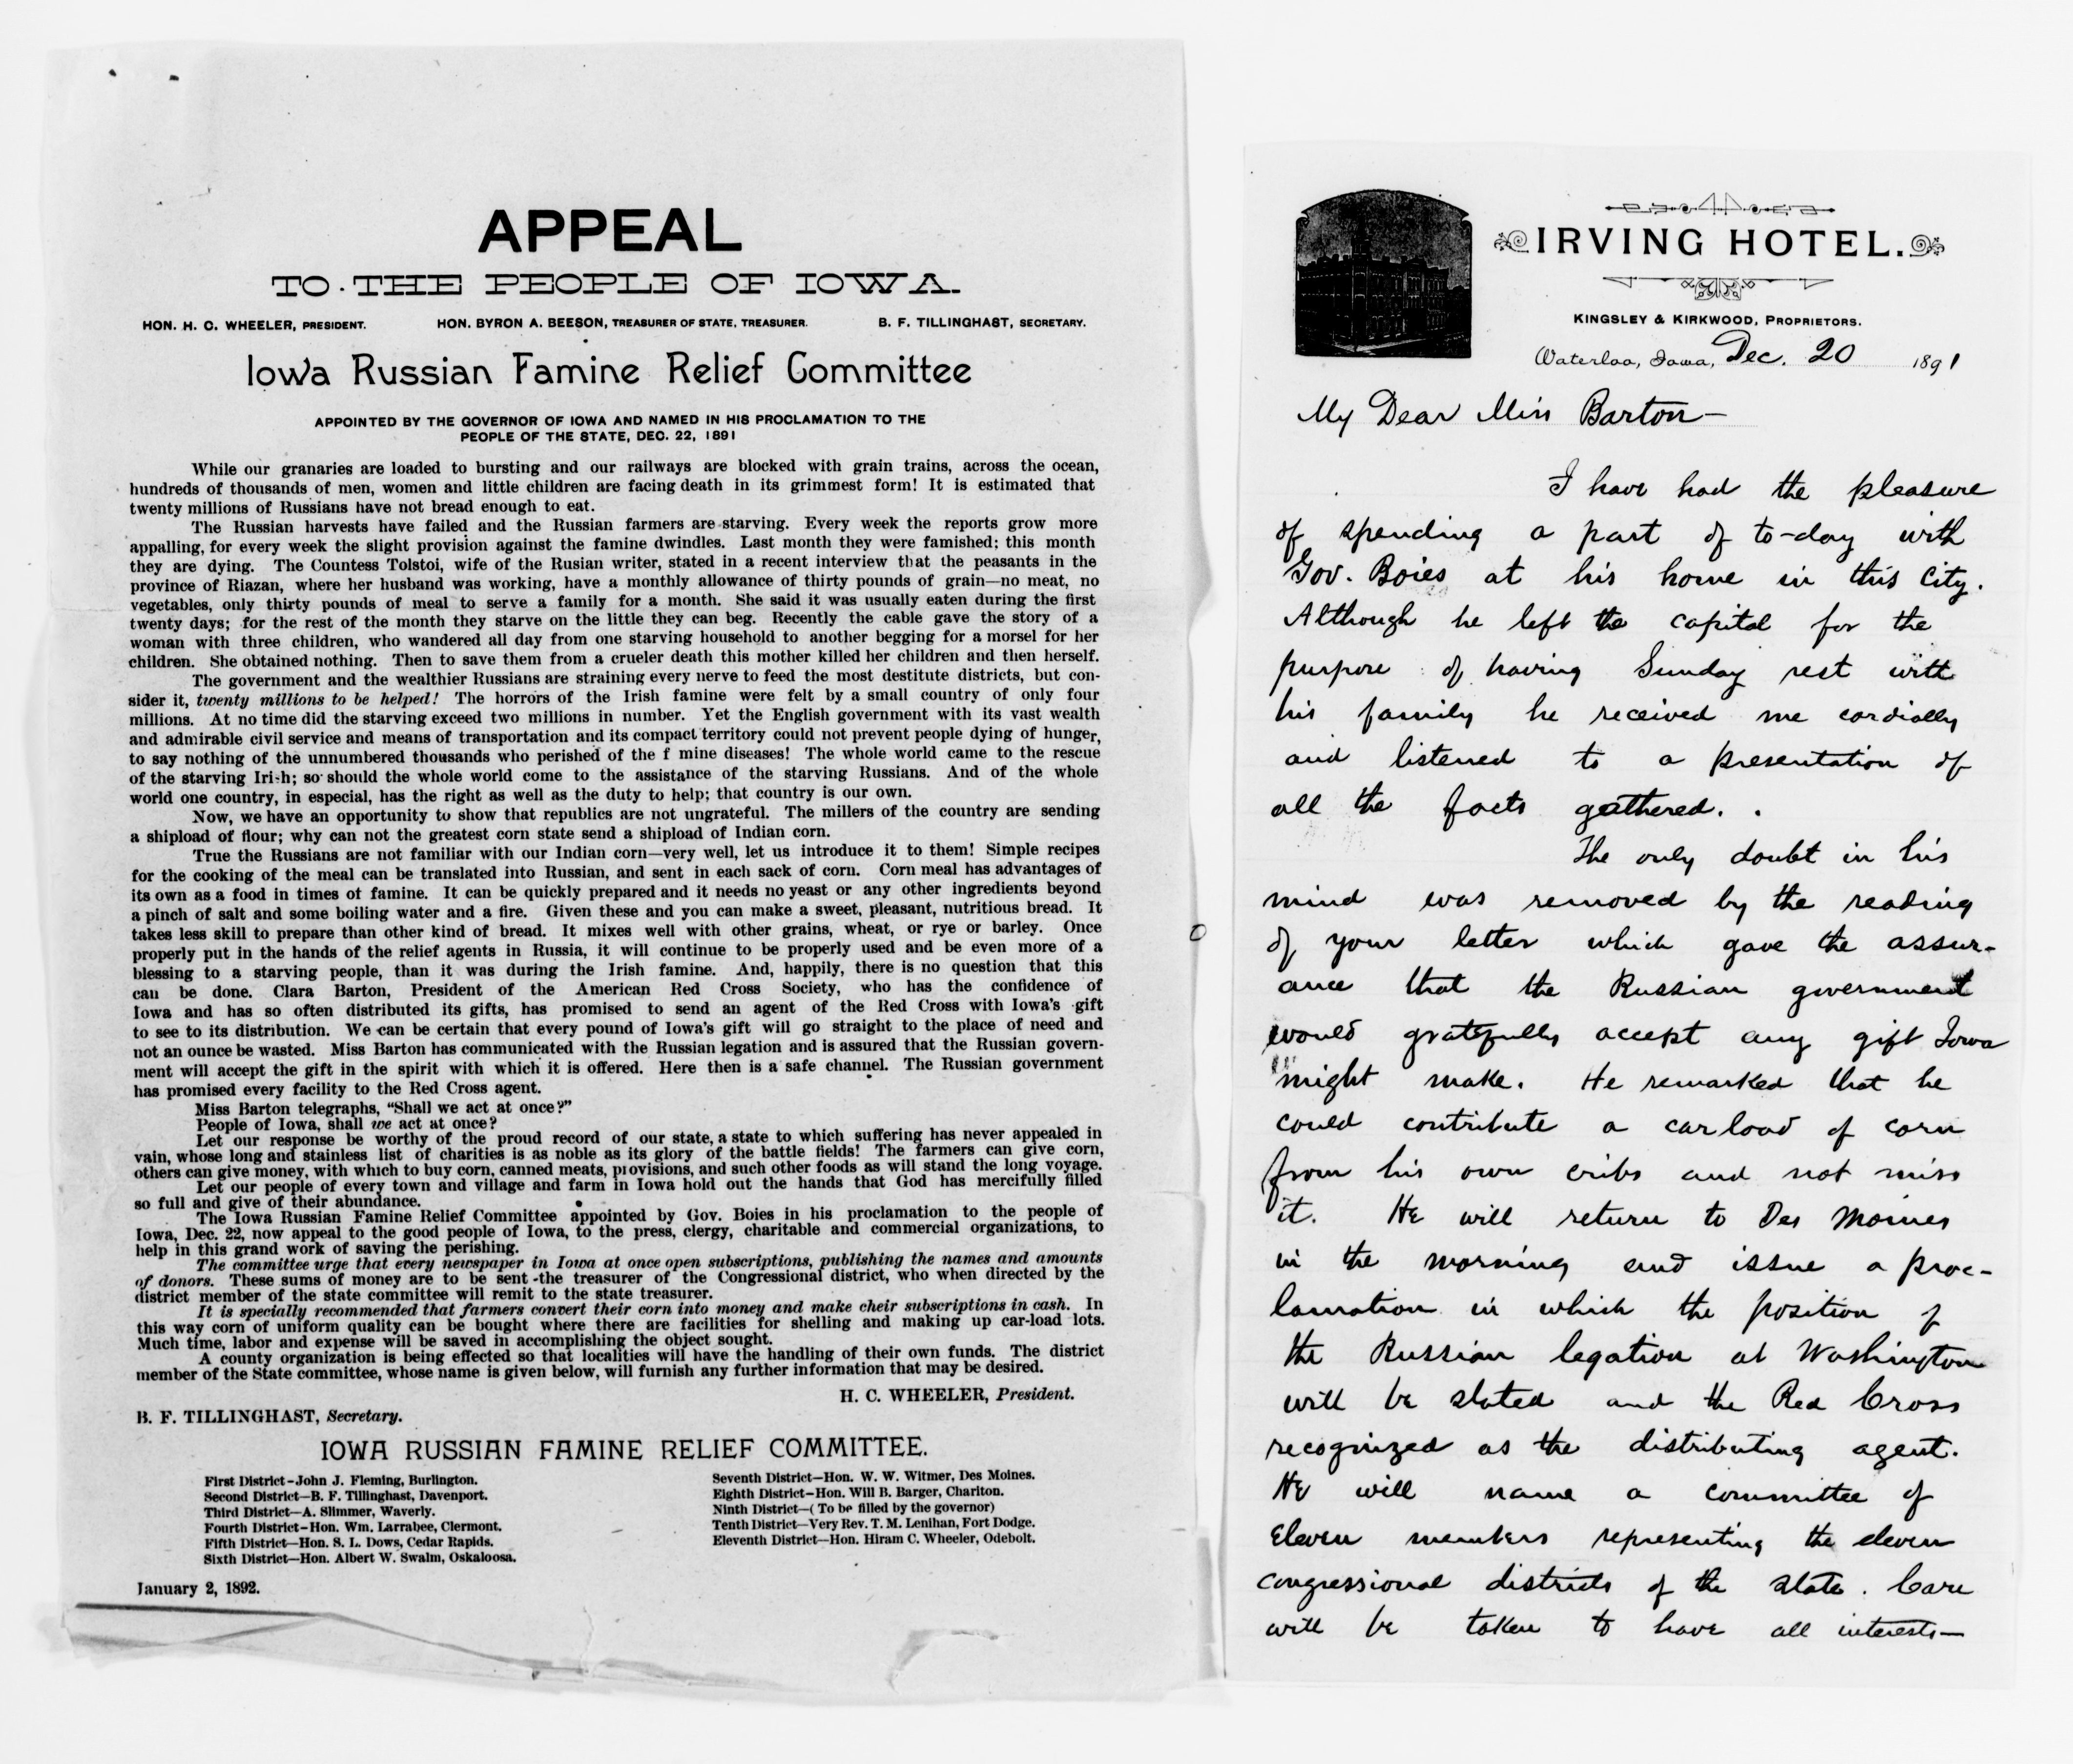 APPEAL
TO THE PEOPLE OF IOWA.
HON. H. C. WHEELER, PRESIDENT. HON. BYRON A. BEESON, TREASURER OF STATE, TREASURER. B. F. TILLINGHAST, SECRETARY.
Iowa Russian Famine Relief Committee
APPOINTED BY THE GOVERNOR OF IOWA AND NAMED IN HIS PROCLAMATION TO THE
PEOPLE OF THE STATE, DEC. 22, 1891
While our granaries are loaded to bursting and our railways are blocked with grain trains, across the ocean,
hundreds of thousands of men, women and little children are facing death in its grimmest form! It is estimated that
twenty millions of Russians have not bread enough to eat.
The Russian harvests have failed and the Russian farmers are starving. Every week the reports grow more
appalling, for every week the slight provision against the famine dwindles. Last month they were famished; this month
they are dying. The Countess Tolstoi, wife of the Rusian writer, stated in a recent interview that the peasants in the
province of Riazan, where her husband was working, have a monthly allowance of thirty pounds of grain—no meat, no
vegetables, only thirty pounds of meal to serve a family for a month. She said it was usually eaten during the first
twenty days; for the rest of the month they starve on the little they can beg. Recently the cable gave the story of a
woman with three children, who wandered all day from one starving household to another begging for a morsel for her
children. She obtained nothing. Then to save them from a crueler death this mother killed her children and then herself.
The government and the wealthier Russians are straining every nerve to feed the most destitute districts, but con-
sider it, twenty millions to be helped! The horrors of the Irish famine were felt by a small country of only four
millions. At no time did the starving exceed two millions in number. Yet the English government with its vast wealth
and admirable civil service and means of transportation and its compact territory could not prevent people dying of hunger,
to say nothing of the unnumbered thousands who perished of the f mine diseases! The whole world came to the rescue
of the starving Irish; so should the whole world come to the assistance of the starving Russians. And of the whole
world one country, in especial, has the right as well as the duty to help; that country is our own.
Now, we have an opportunity to show that republics are not ungrateful. The millers of the country are sending
a shipload of flour; why can not the greatest corn state send a shipload of Indian corn.
True the Russians are not familiar with our Indian corn—very well, let us introduce it to them! Simple recipes
for the cooking of the meal can be translated into Russian, and sent in each sack of corn. Corn meal has advantages of
its own as a food in times of famine. It can be quickly prepared and it needs no yeast or any other ingredients beyond
a pinch of salt and some boiling water and a fire. Given these and you can make a sweet, pleasant, nutritious bread. It
takes less skill to prepare than other kind of bread. It mixes well with other grains, wheat, or rye or barley. Once
properly put in the hands of the relief agents in Russia, it will continue to be properly used and be even more of a
blessing to a starving people, than it was during the Irish famine. And, happily, there is no question that this
can be done. Clara Barton, President of the American Red Cross Society, who has the confidence of
Iowa and has so often distributed its gifts, has promised to send an agent of the Red Cross with Iowa's gift
to see to its distribution. We can be certain that every pound of Iowa's gift will go straight to the place of need and
not an ounce be wasted. Miss Barton has communicated with the Russian legation and is assured that the Russian govern-
ment will accept the gift in the spirit with which it is offered. Here then is a safe channel. The Russian government
has promised every facility to the Red Cross agent.
Miss Barton telegraphs, "Shall we act at once?"
People of Iowa, shall we act at once?
Let our response be worthy of the proud record of our state, a state to which suffering has never appealed in
vain, whose long and stainless list of charities is as noble as its glory of the battle fields! The farmers can give corn,
others can give money, with which to buy corn, canned meats, provisions, and such other foods as will stand the long voyage.
Let our people of every town and village and farm in Iowa hold out the hands that God has mercifully filled
so full and give of their abundance.
The Iowa Russian Famine Relief Committee appointed by Gov. Boies in his proclamation to the people of
Iowa, Dec. 22, now appeal to the good people of Iowa, to the press, clergy, charitable and commercial organizations, to
help in this grand work of saving the perishing.
The committee urge that every newspaper in Iowa at once open subscriptions, publishing the names and amounts
of donors. These sums of money are to be sent the treasurer of the Congressional district, who when directed by the
district member of the state committee will remit to the state treasurer.
It is specially recommended that farmers convert their corn into money and make cheir subscriptions in cash. In
this way corn of uniform quality can be bought where there are facilities for shelling and making up car-load lots.
Much time, labor and expense will be saved in accomplishing the object sought.
A county organization is being effected so that localities will have the handling of their own funds. The district
member of the State committee, whose name is given below, will furnish any further information that may be desired.
H. C. WHEELER, President.
B. F. TILLINGHAST, Secretary.
IOWA RUSSIAN FAMINE RELIEF COMMITTEE.
First District-John J. Fleming, Burlington.
Second District—B. F. Tillinghast, Davenport.
Third District—A. Slimmer, Waverly.
Fourth District-Hon. Wm. Larrabee, Clermont.
Fifth District—Hon. S. L. Dows, Cedar Rapids.
Sixth District—Hon. Albert W. Swalm, Oskaloosa.
Seventh District—Hon. W. W. Witmer, Des Moines.
Eighth District-Hon. Will B. Barger, Chariton.
Ninth District—( To be filled by the governor)
Tenth District—Very Rev. T. M. Lenihan, Fort Dodge.
Eleventh District—Hon. Hiram C. Wheeler, Odebolt.
January 2, 1892.
IRVING HOTEL.
KINGSLEY & KIRKWOOD, PROPRIETORS.
Waterloo, Iowa, Dec. 20 1891
My Dear Miss Barton—
I have had the pleasure
of spending a part of to-day with
Gov. Boies at his home in this City.
Although he left the capital for the
purpose of having Sunday rest with
his family he received me cordially
and listened to a presentation of
all the facts gathered.
The only doubt in his
mind was removed by the reading
of your letter which gave the assur-
ance that the Russian government
would gratefully accept any gift Iowa
might make. He remarked that he
could contribute a carload of corn
from his own cribs and not miss
it. He will return to Des Moines
in the morning and issue a proc-
lamation in which the position of
the Russian legation at Washington
will be stated and the Red Cross
recognized as the distributing agent.
He will name a committee of
Eleven members representing the eleven
congressional districts of the state. Care
will be taken to have all interests—